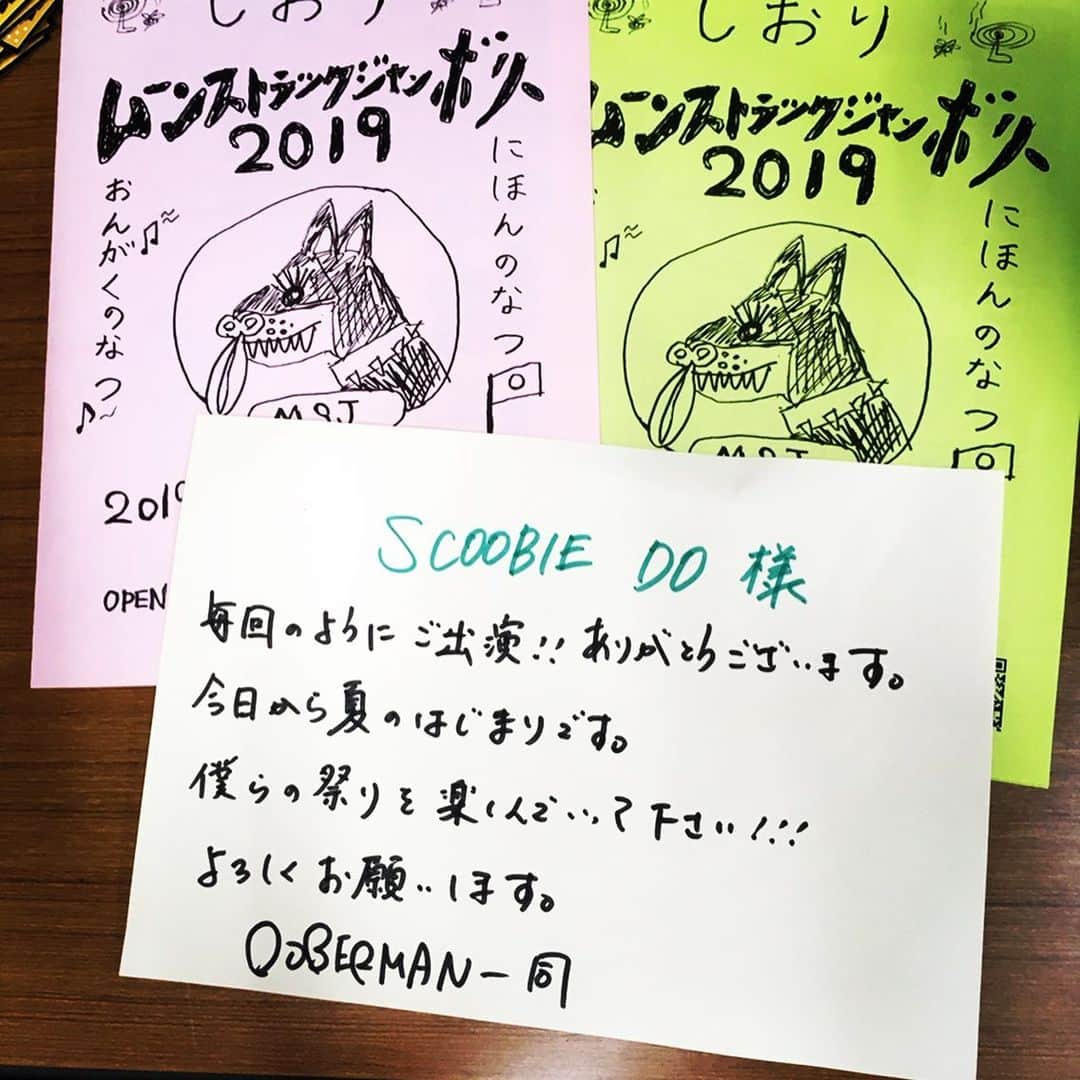 しおり
ムーンストラックジャンボリー
2019
にほんのなつ
おんがくのなつ
MSJ
201
OPEN
しおり
ムーンストラックジャンボリー
2019
にほんのなつ
MSJ
SCOOBIE DO 様
毎回のようにご出演!! ありがとうございます。
今日から夏のはじまりです。
僕らの祭りを楽しんでいって下さい!!!
よろしくお願いします。
DOBERMAN一同